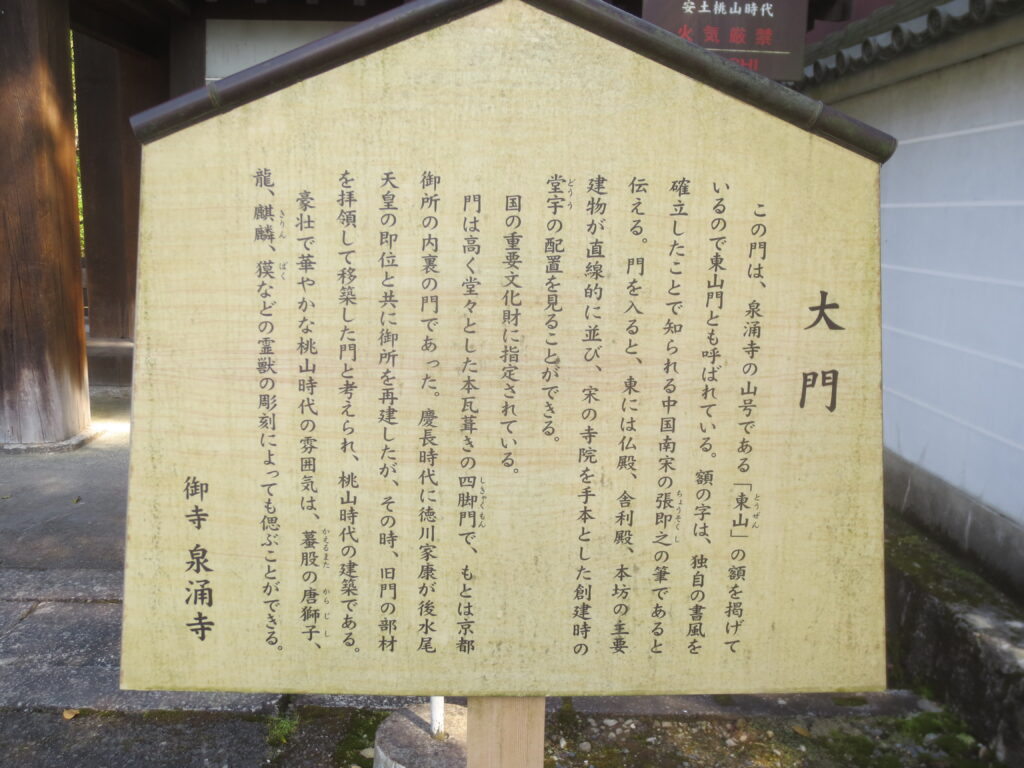 安土桃山時代
火気厳禁
大門
この門は、泉涌寺の山号である「東山」の額を掲げて
いるので東山門とも呼ばれている。額の字は、独自の書風を
確立したことで知られる中国南宋の張即之の筆であると
伝える。門を入ると、東には仏殿、舎利殿、本坊の主要
建物が直線的に並び、宋の寺院を手本とした創建時の
堂宇の配置を見ることができる。
国の重要文化財に指定されている。
門は高く堂々とした本瓦葺きの四脚門で、もとは京都
御所の内裏の門であった。慶長時代に徳川家康が後水尾
天皇の即位と共に御所を再建したが、その時、旧門の部材
を拝領して移築した門と考えられ、桃山時代の建築である。
豪壮で華やかな桃山時代の雰囲気は、蟇股の唐獅子、
龍、麒麟、獏などの霊獣の彫刻によっても偲ぶことができる。
御寺 泉涌寺